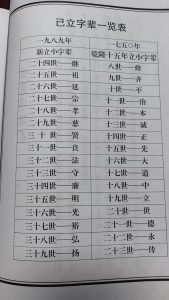 己立字辈一览表
一九八九年 一七五〇年
新立小字辈 乾隆十五年立小字辈
二十四世—继 八世—修
二十五世—祖 九世—齐
二十六世—延 十世—平
二十七世—宗 十一世—治
二十八世—孝 十二世—本
二十九世—慈 十三世—诚
三十世—贤 十四世—正
三十一世—良 十五世—先
三十二世—法 十六世—大
三十三世—守 十七世—道
三十四世—廉 十八世—中
三十五世—明 十九世—立
三十六世—光 二十世—世
三十七世—裕 二十一世—德
三十八世—弘 二十二世—永
三十九世—扬 二十三世—传